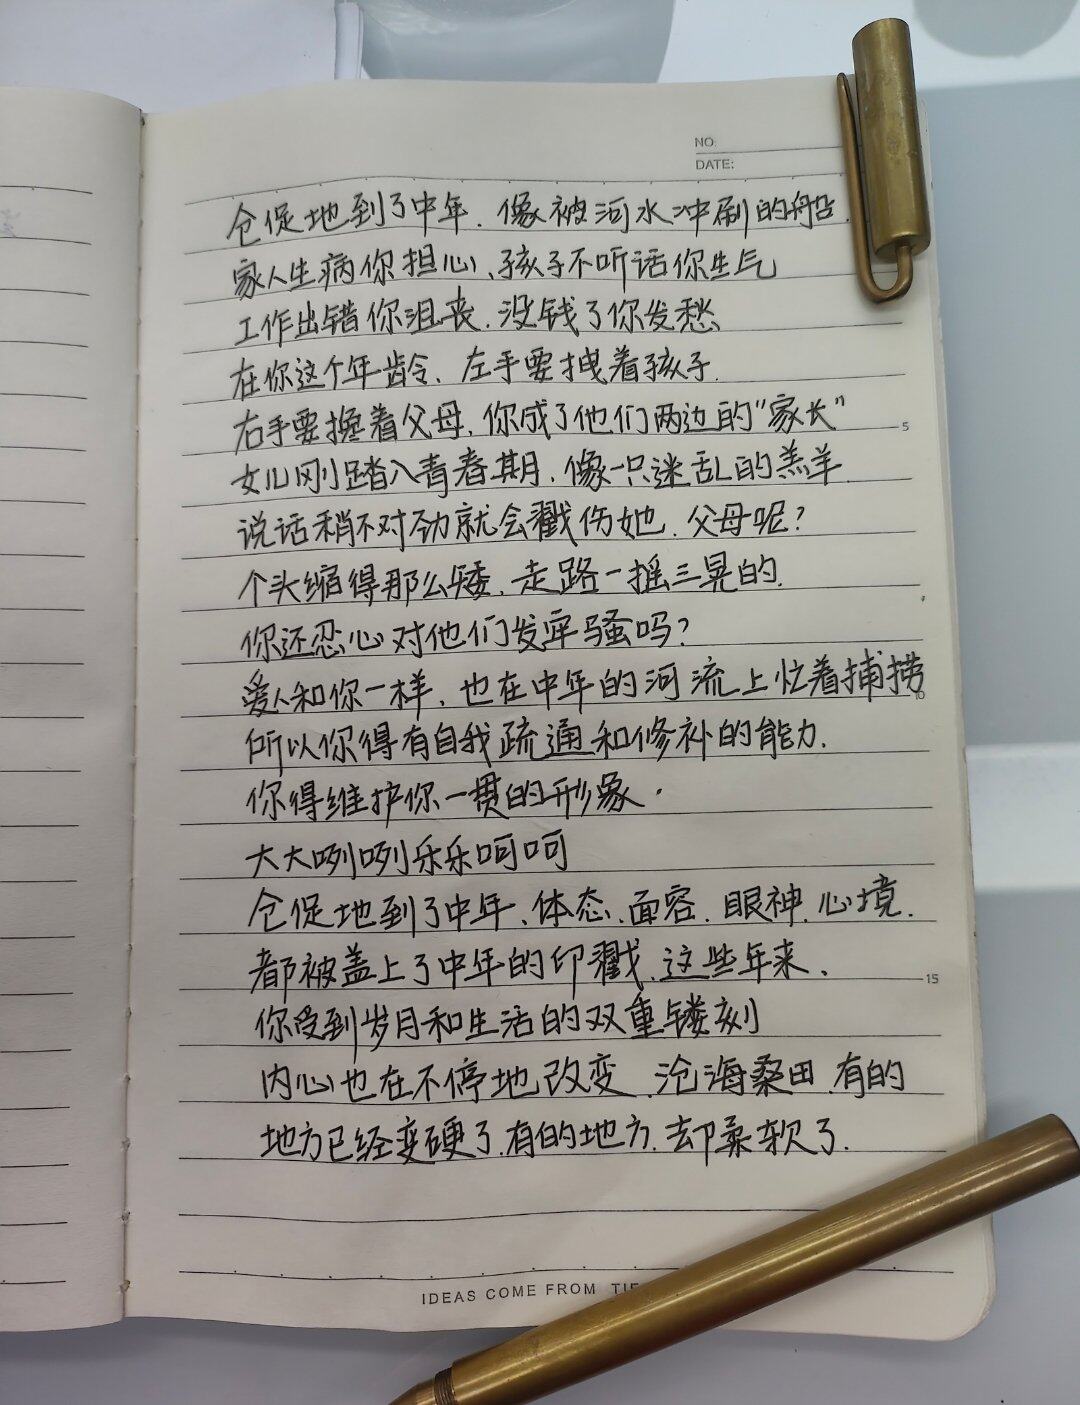 NO:
DATE:
仓促地到了中年.像被河水冲刷的船.
家人生病你担心、孩子不听话你生气
工作出错你沮丧.没钱了你发愁
在你这个年龄、左手要拽着孩子.
右手要搀着父母.你成了他们两边的"家长"
5
女儿刚踏入青春期.像一只迷乱的羔羊.
说话稍不对劲就会戳伤她.父母呢?
个头缩得那么矮.走路一摇三晃的.
你还忍心对他们发牢骚吗?
爱人和你一样.也在中年的河流上忙着捕捞
10
所以你得有自我疏通和修补的能力.
你得维护你一贯的形象.
大大咧咧乐乐呵呵
仓促地到了中年、体态.面容.眼神.心境.
都被盖上了中年的印戳.这些年来、
15
你受到岁月和生活的双重镂刻
内心也在不停地改变.沧海桑田.有的
地方已经变硬了.有的地方.却柔软了.
IDEAS COME FROM